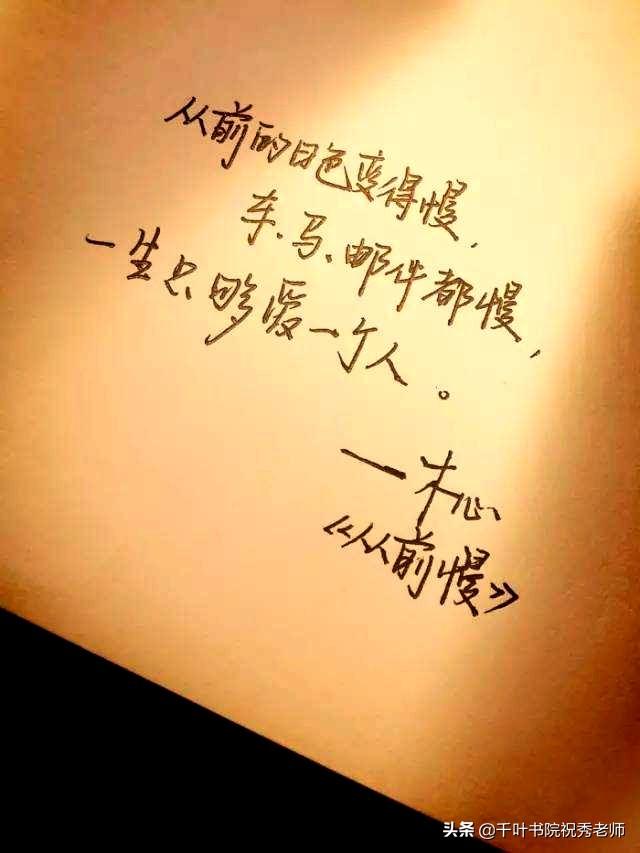 从前的日色变得慢，
车、马、邮件都慢，
一生只够爱一个人。
—木心
《从前慢》
头条@千叶书院祝秀老师